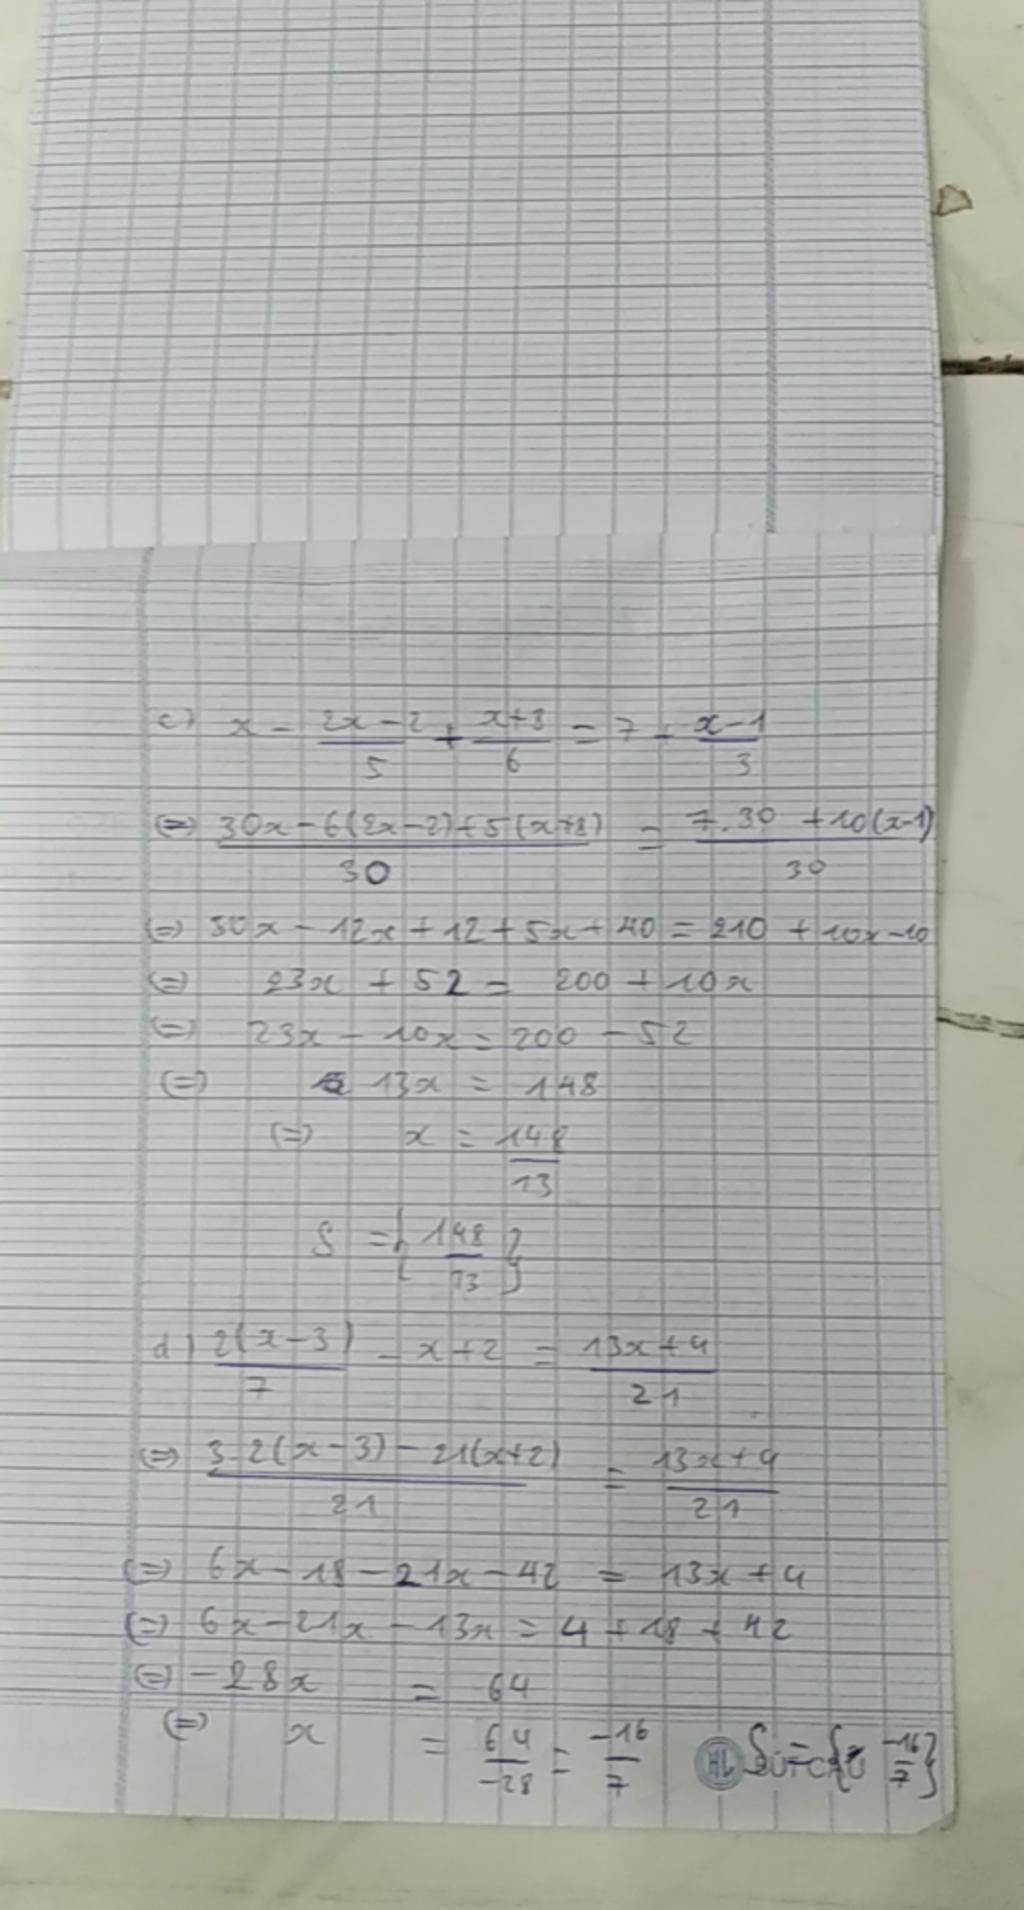 c) x - 2x-2/5 + x+8/6 = 7 - x-1/3
(=) 30x-6(2x-2)+5(x+8)/30 = 7.30 +10(x-1)/30
(=) 30x - 12x + 12 + 5x + 40 = 210 + 10x-10
(=) 23x + 52 = 200 + 10x
(=) 23x - 10x = 200 - 52
(=) 13x = 148
(=) x = 148/13
S = { 148/13 }
d) 2(x-3)/7 - x+2 = 13x+4/21
(=) 3.2(x-3) - 21(x+2)/21 = 13x+4/21
(=) 6x-18-21x-42 = 13x+4
(=) 6x-21x-13x = 4+18+42
(=) -28x = 64
(=) x = 64/-28 = -16/7 S={ -16/7 }